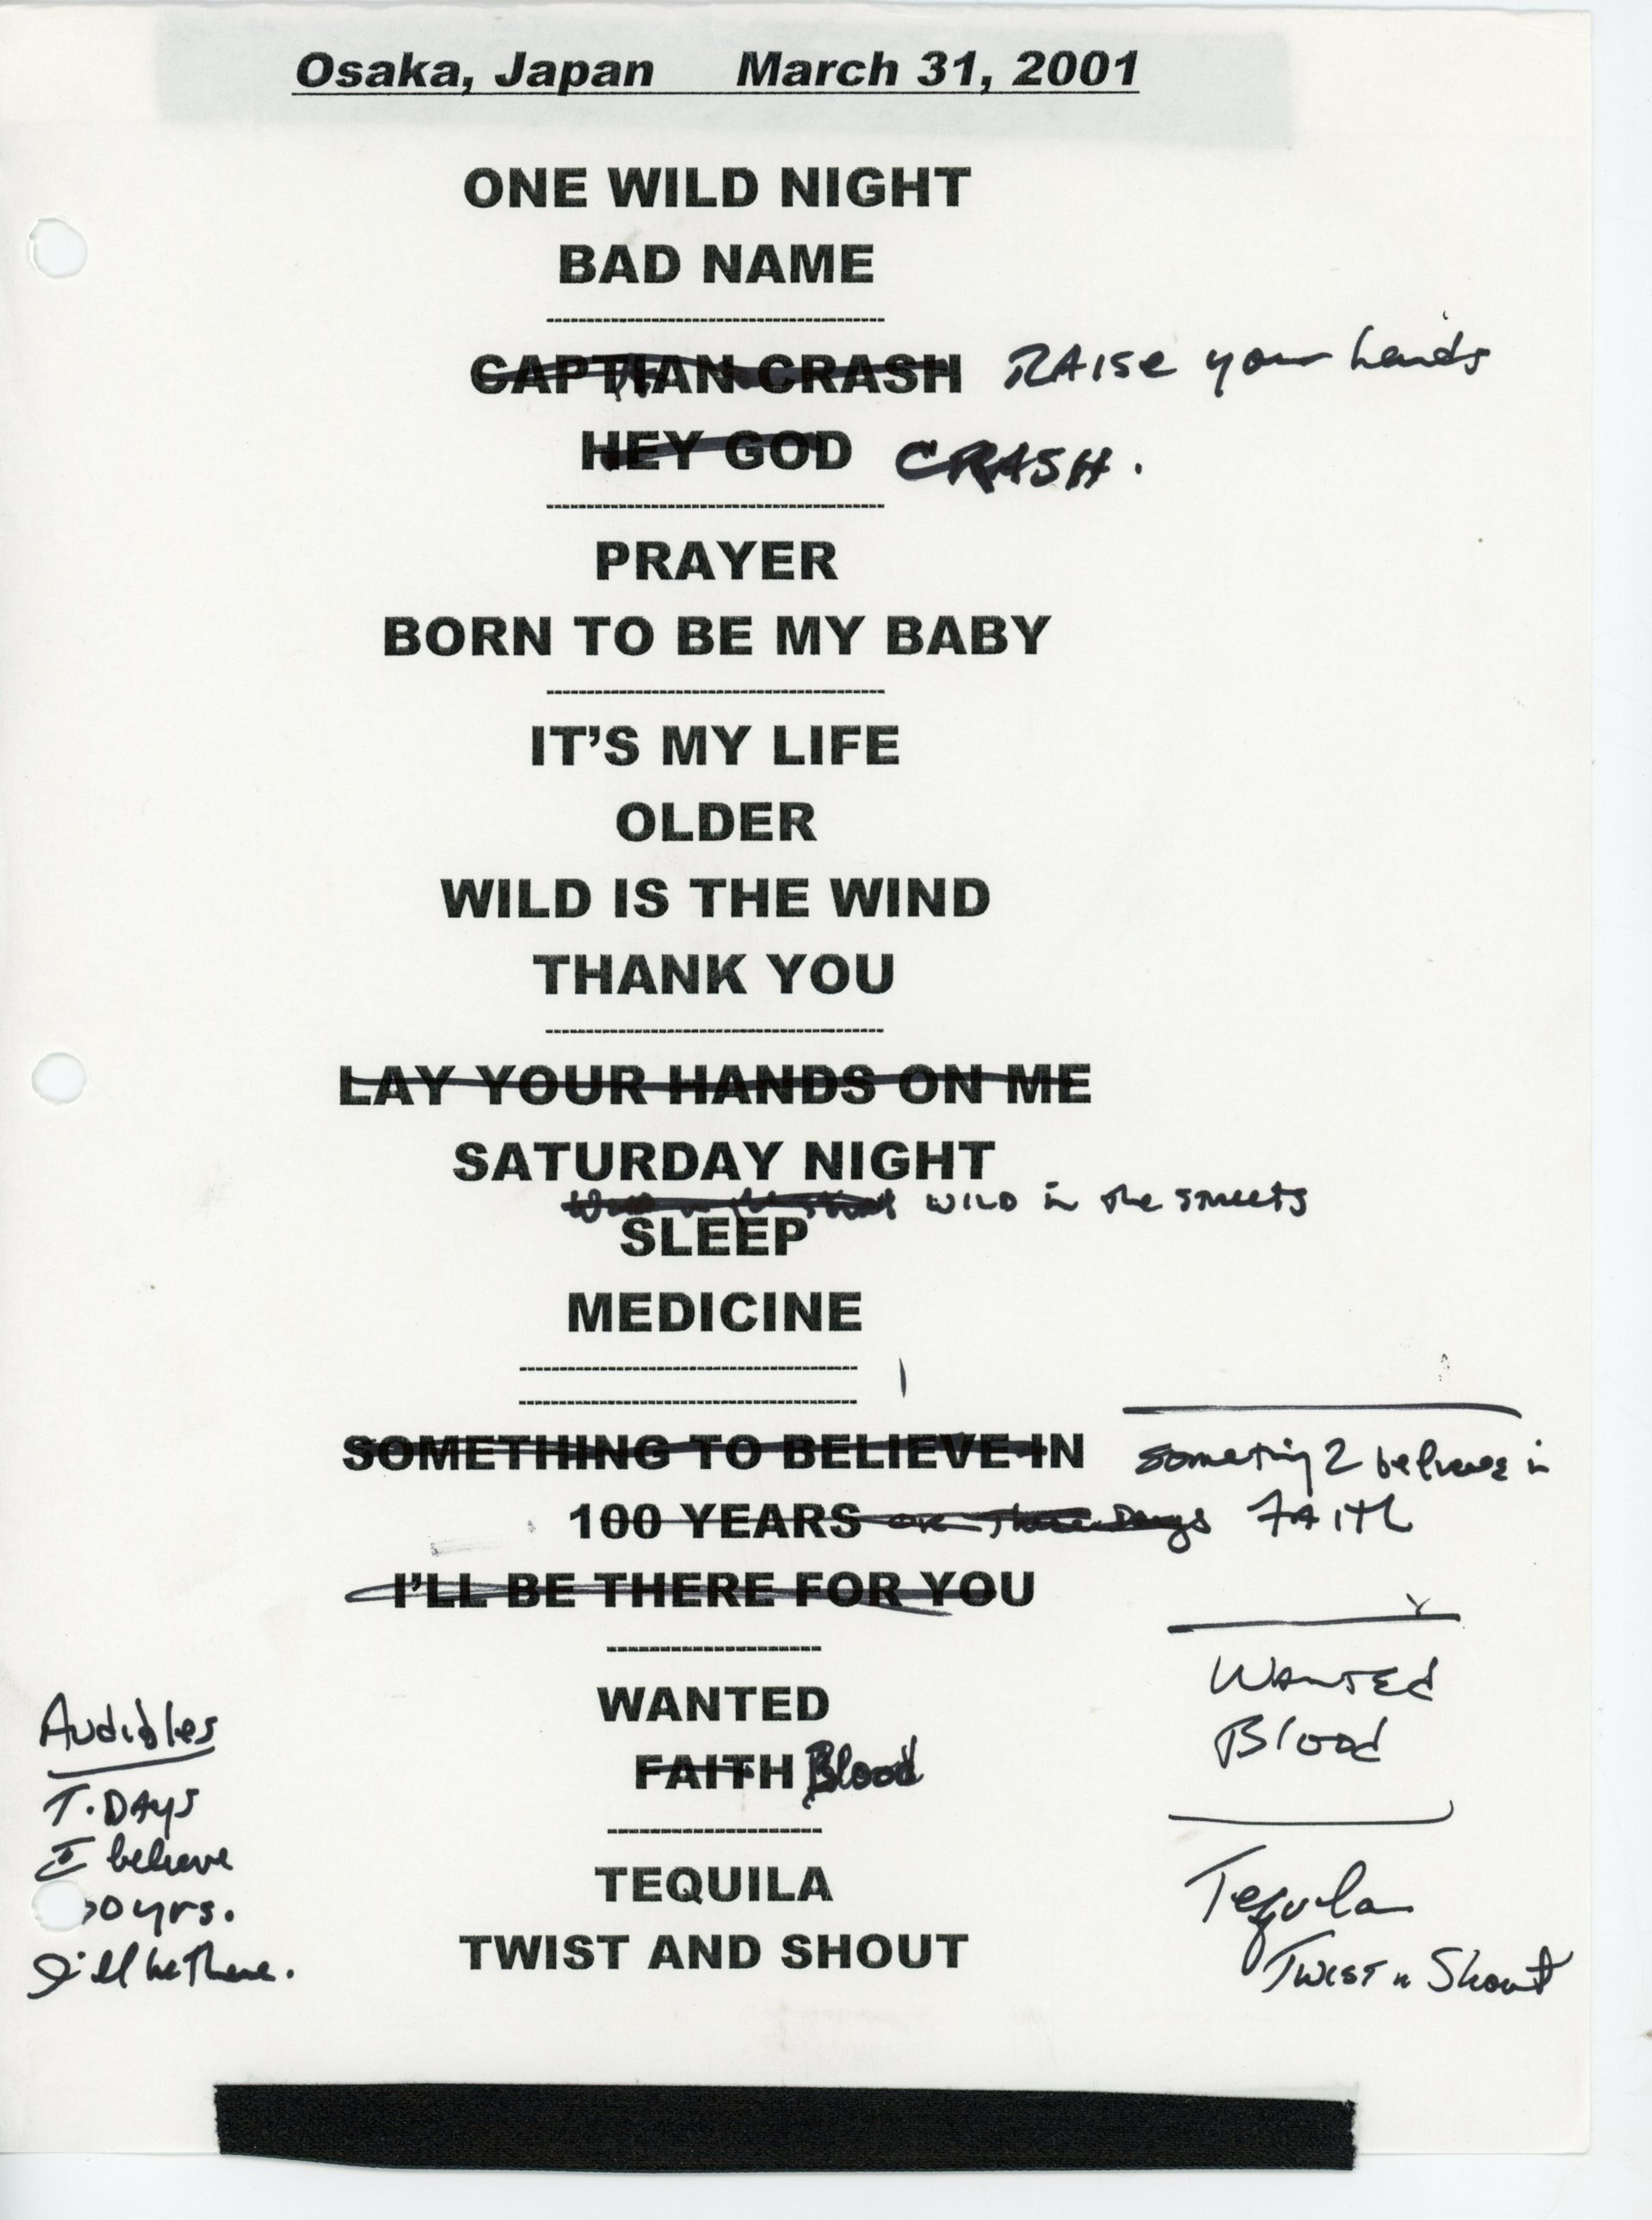 Osaka, Japan March 31, 2001
ONE WILD NIGHT
BAD NAME
CAPTIAN CRASH RAISE your hands
HEY GOD CRASH.
PRAYER
BORN TO BE MY BABY
IT'S MY LIFE
OLDER
WILD IS THE WIND
THANK YOU
LAY YOUR HANDS ON ME
SATURDAY NIGHT
WILD in the streets
SLEEP
MEDICINE
SOMETHING TO BELIEVE IN Something 2 believe in
100 YEARS or These Days FAITH
I'LL BE THERE FOR YOU
WANTED
FAITH Blood
TEQUILA
TWIST AND SHOUT
WANTED
Blood
Tequila
TWIST n Shout
Audibles
T. DAYS
I believe
00 yrs.
I'll be There.